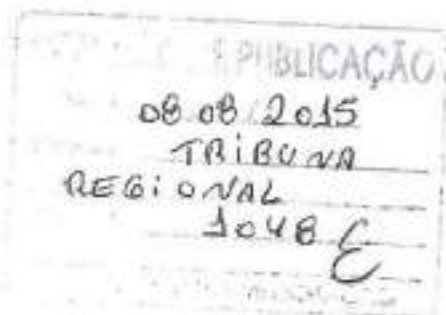 PUBLICAÇÃO
08 08 2015
TRIBUNA
REGIONAL
1048